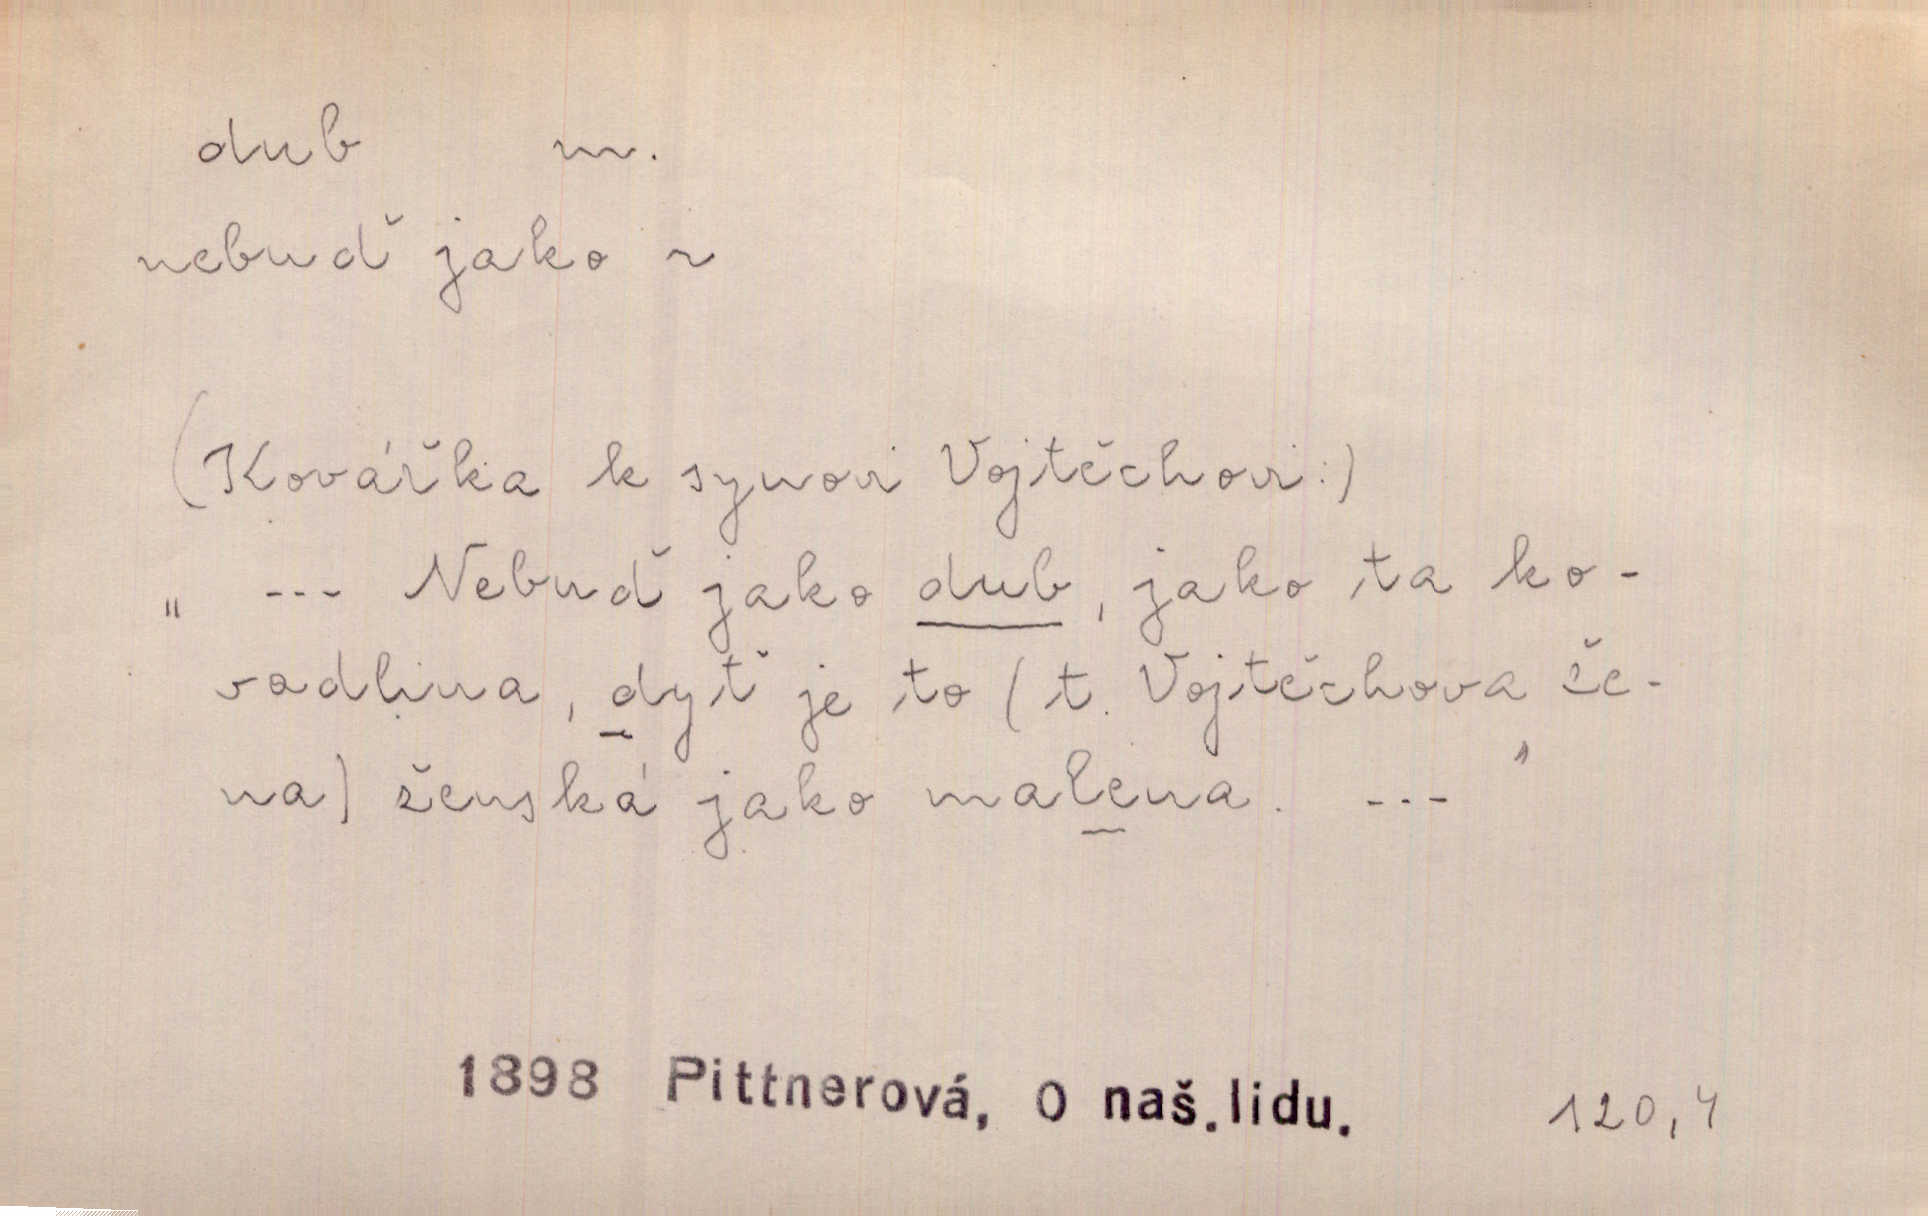 dub m.
nebuď jako ~
(Kovářka k synovi Vojtěchovi:)
„ --- Nebuď jako dub, jako ta ko-
vadlina, dyť je to (t. Vojtěchova že-
na) ženská jako malena. --- "
1898 Pittnerová, O naš. lidu. 120,4